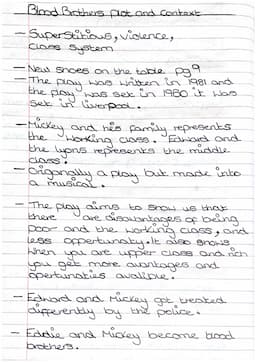 Blood Brothers plot and Context
- Superstitious, Violence,
class System
- New shoes on the table pg9
- The play was written in 1981 and
the play was set in 1980 it was
set in liverpool.
- Mickey and his family represents
the working class. Edward and
the lyons represents the middle
class.
- Origonally a play but made into
a musical.
- The play aims to show us that
there are disavantages of being
poor and the working class, and
less oppertunaty. It also shows
when you are upper class and rich
you get more avantages and
opertunaties avalible.
- Edward and Mickey got treated
differently by the police.
- Eddie and Mickey become blood
brothers.